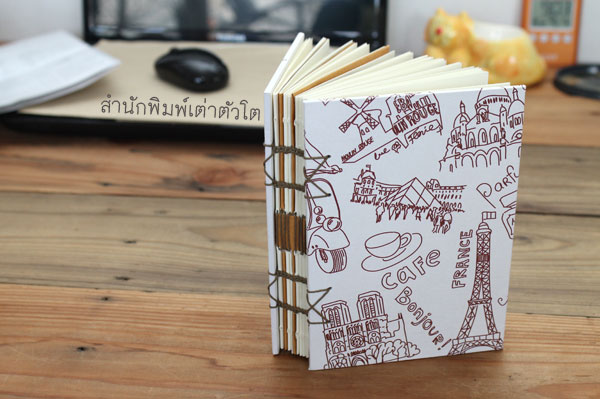 สำนักพิมพ์เต่าตัวโต
MOULIN ROUGE
Paris
cafe
FRANCE
Bonjour!